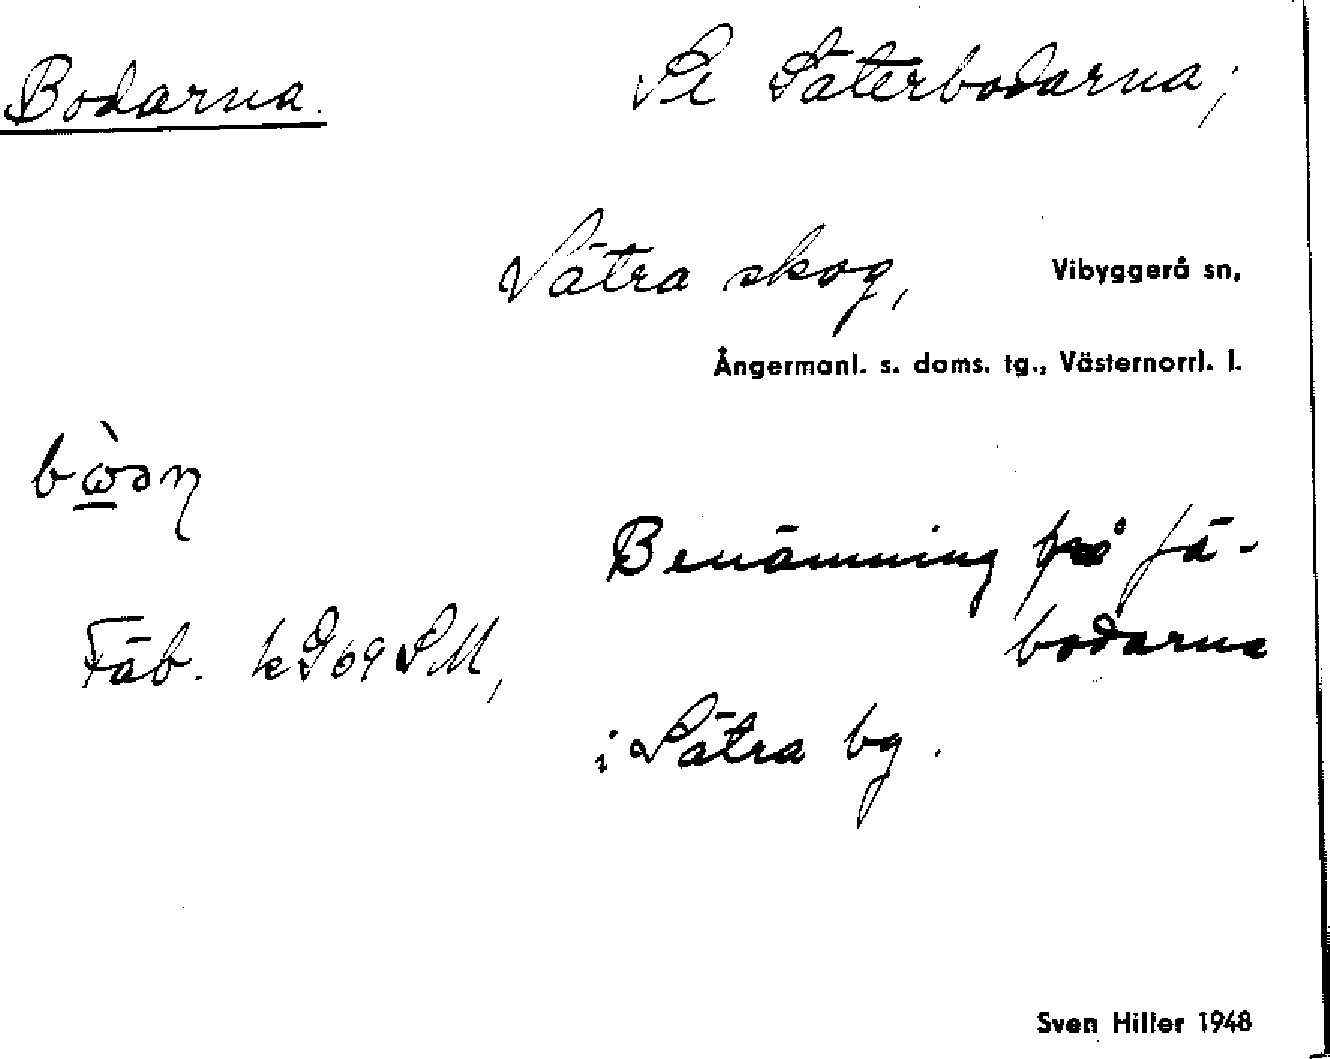 Bodarna. Se Säterbodarna;
Sätra skog, Vibyggerå sn,
Ångermanl. s. doms. tg., Västernorrl. l.
Benämning på fä-
Fäb. bodarna
i Sätra bg.
Sven Hiller 1948